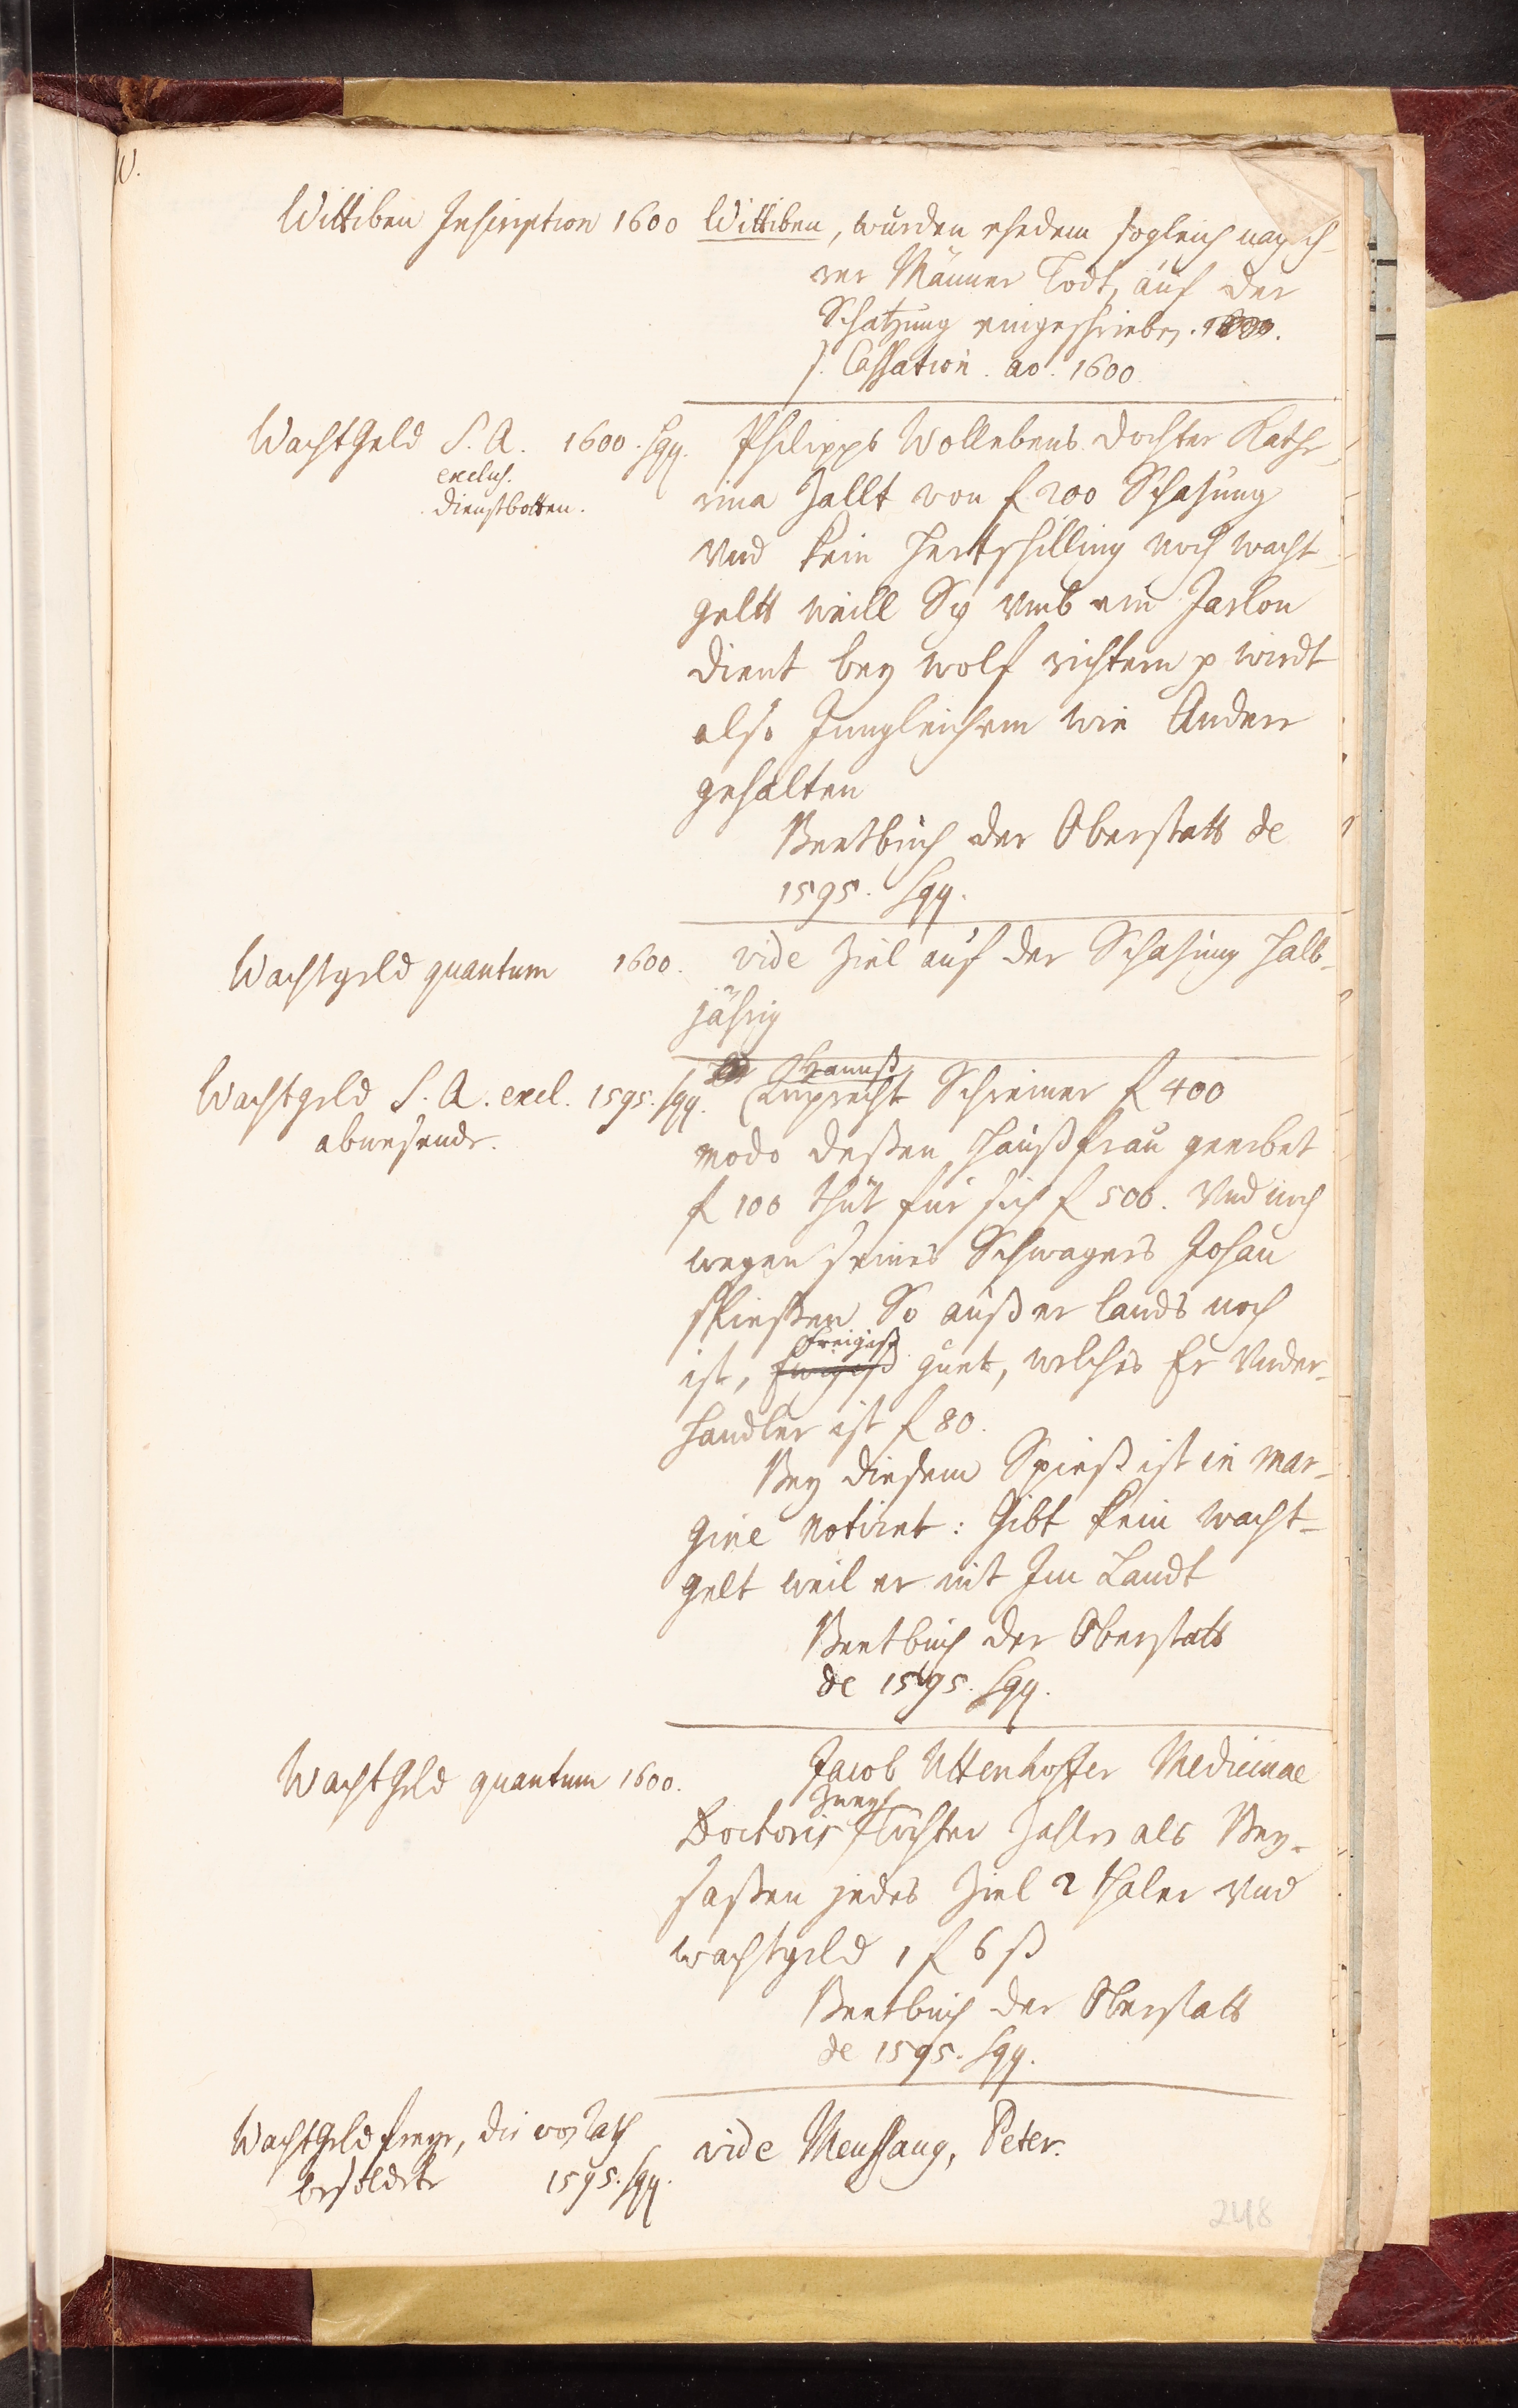 W.
Wittiben Inscription 1600 Wittiben, wurden ehedem sogleich nach ih-
rer Männer Todt, auf der
Schatzung eingeschrieben.
s. Cassation. ao. 1600
WachtGeld S. A. 1600. sqq.
exclus.
Dienstbotten.
Philipps Wollebens Dochter Kathe-
rina zallt von f 200 Schazung
vnd kein Hertschilling noch wacht-
geltt weill Sy vmb ein Jarlon
dient bey wolf richtern p wirdt
also Jungleichem wie Andere
gehalten
Beetbuch der Oberstatt de
1595. sqq.
Wachtgeld quantum 1600.
vide Ziel auf der Schazung halb-
jährig
Wachtgeld S. A. excl. 1595. sqq.
abwesende.
Hannß
(Ruprecht Schreiner f 400
modo deßen Haußfrau geerbet
f 100 thut für sich f 500. Vnd noch
wegen seines Schwagers Johan
Spießen So außer lands noch
ist, guet, welches Er Vnder-
handler ist f 80.
Bey diesem Spieß ist in mar-
gine notiret: Gibt kein wacht-
gelt weil er nit Im Landt
Beetbuch der Oberstatt
de 1595. sqq.
WachtGeld quantum 1600.
Jacob Uttenhoffer Medicinae
zwey
Doctoris Töchter zahlen als Bey-
saßen jedes Ziel 2 thaler vnd
wachtgeld 1 f 6 ß
Beetbuch der Oberstatt
de 1595. sqq.
WachtGeld freye, die von Rath
besoldete 1595. sqq.
vide Meussang, Peter.
248